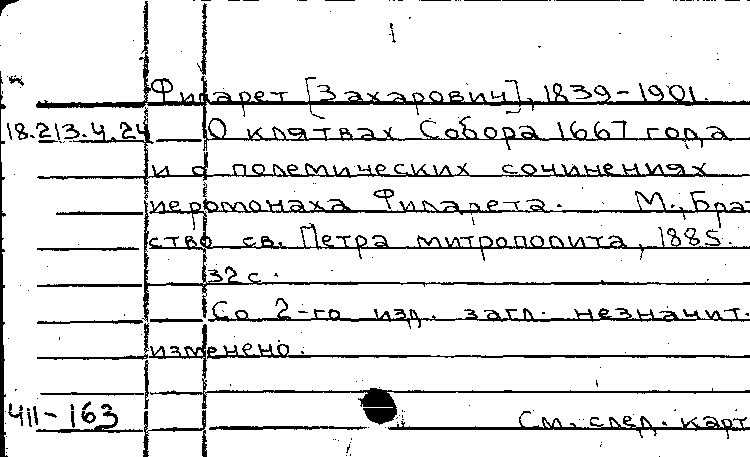 Филарет [Захарович], 1839-1901.
18.213.4.24 О клятвах Собора 1667 года
и о полемических сочинениях
иеромонаха Филарета. М., Брат
ство св. Петра митрополита, 1885.
32 с.
Со 2-го изд. загл. незначит.
изменено.
411-163 См. след. карт